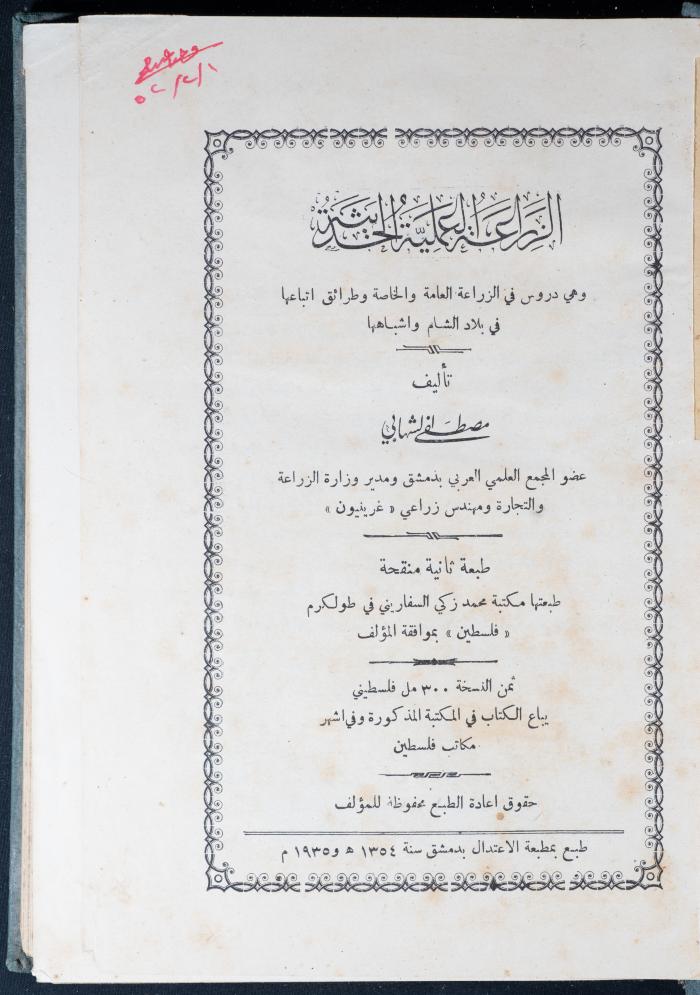 الزراعة العملية الحديثة
وهي دروس في الزراعة العامة والخاصة وطرائق اتباعها
في بلاد الشام واشباهها
تأليف
مصطفى الشهابي
عضو المجمع العلمي العربي بدمشق ومدير وزارة الزراعة
والتجارة ومهندس زراعي « غرينيون »
طبعة ثانية منقحة
طبعتها مكتبة محمد زكي السفاريني في طولكرم
« فلسطين » بموافقة المؤلف
ثمن النسخة ٣٠٠ مل فلسطيني
يباع الكتاب في المكتبة المذكورة وفي اشهر
مكاتب فلسطين
حقوق اعادة الطبع محفوظة للمؤلف
طبع بمطبعة الاعتدال بدمشق سنة ١٣٥٤ ه و ١٩٣٥ م